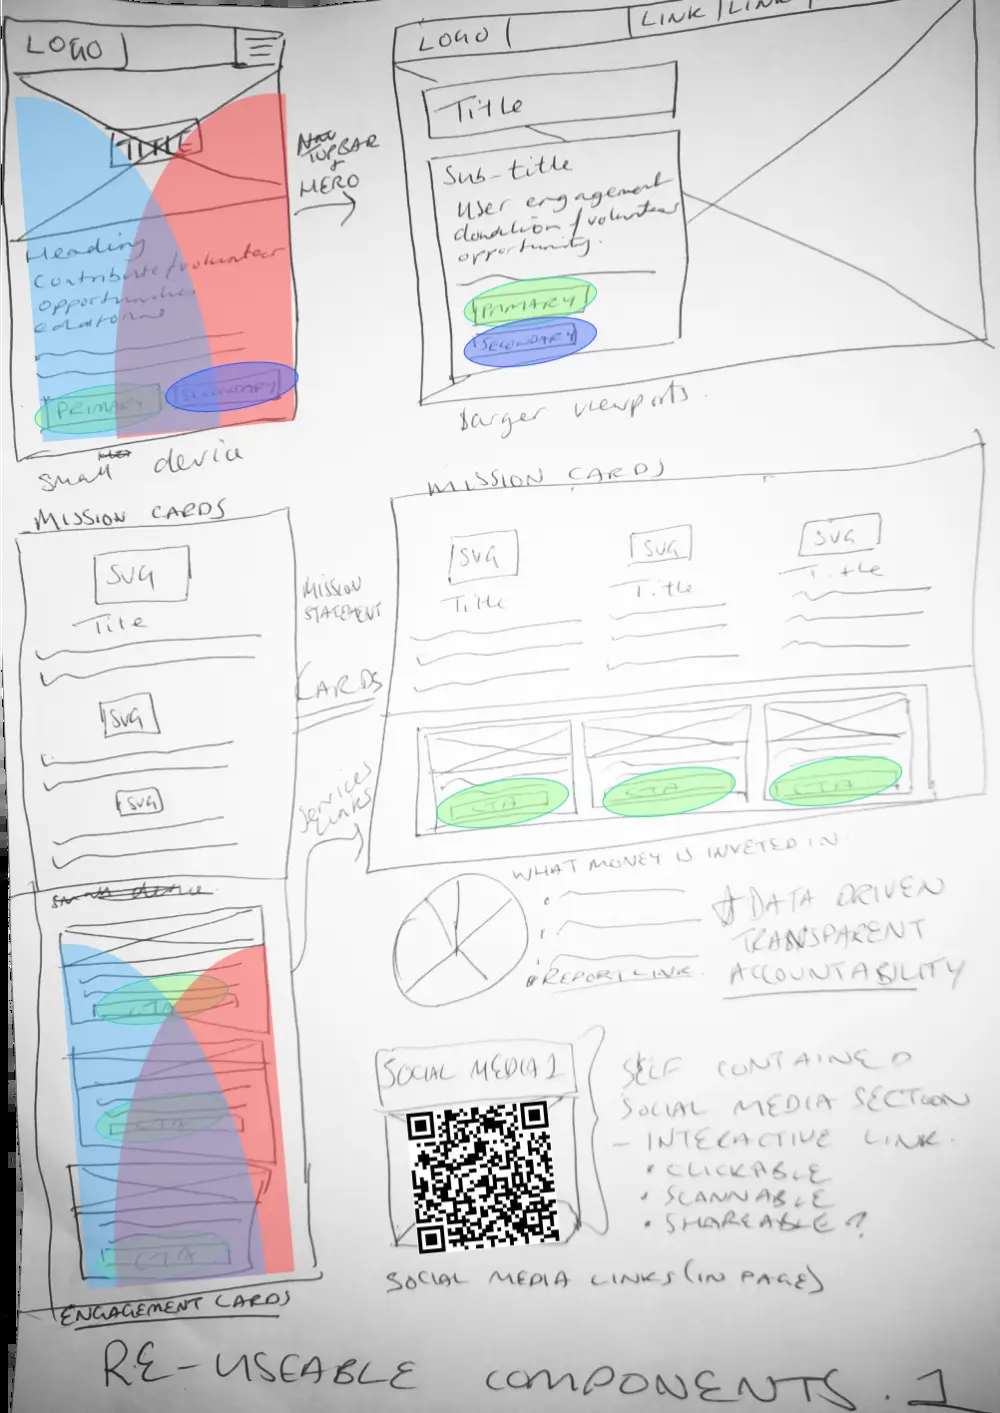 LOGO
TITLE
Heading
Contribute/volunteer
opportunities
PRIMARY
SECONDARY
small device
TOPBAR
+
HERO
LOGO
LINK
LINK
Title
Sub-title
User engagement
donation/volunteer
opportunity.
PRIMARY
SECONDARY
Larger viewports.
MISSION CARDS
SVG
Title
SVG
SVG
small device
MISSION
STATEMENT
CARDS
Services
Links
MISSION CARDS
SVG
Title
SVG
Title
SVG
Title
CTA
CTA
CTA
WHAT MONEY IS INVETED IN.
REPORT LINK.
DATA DRIVEN
TRANSPARENT
ACCOUNTABILITY
CTA
CTA
CTA
ENGAGEMENT CARDS
SOCIAL MEDIA 1
SELF CONTAINED
SOCIAL MEDIA SECTION
- INTERACTIVE LINK.
• CLICKABLE
• SCANNABLE
• SHAREABLE?
SOCIAL MEDIA LINKS (IN PAGE)
RE-USEABLE COMPONENTS.1